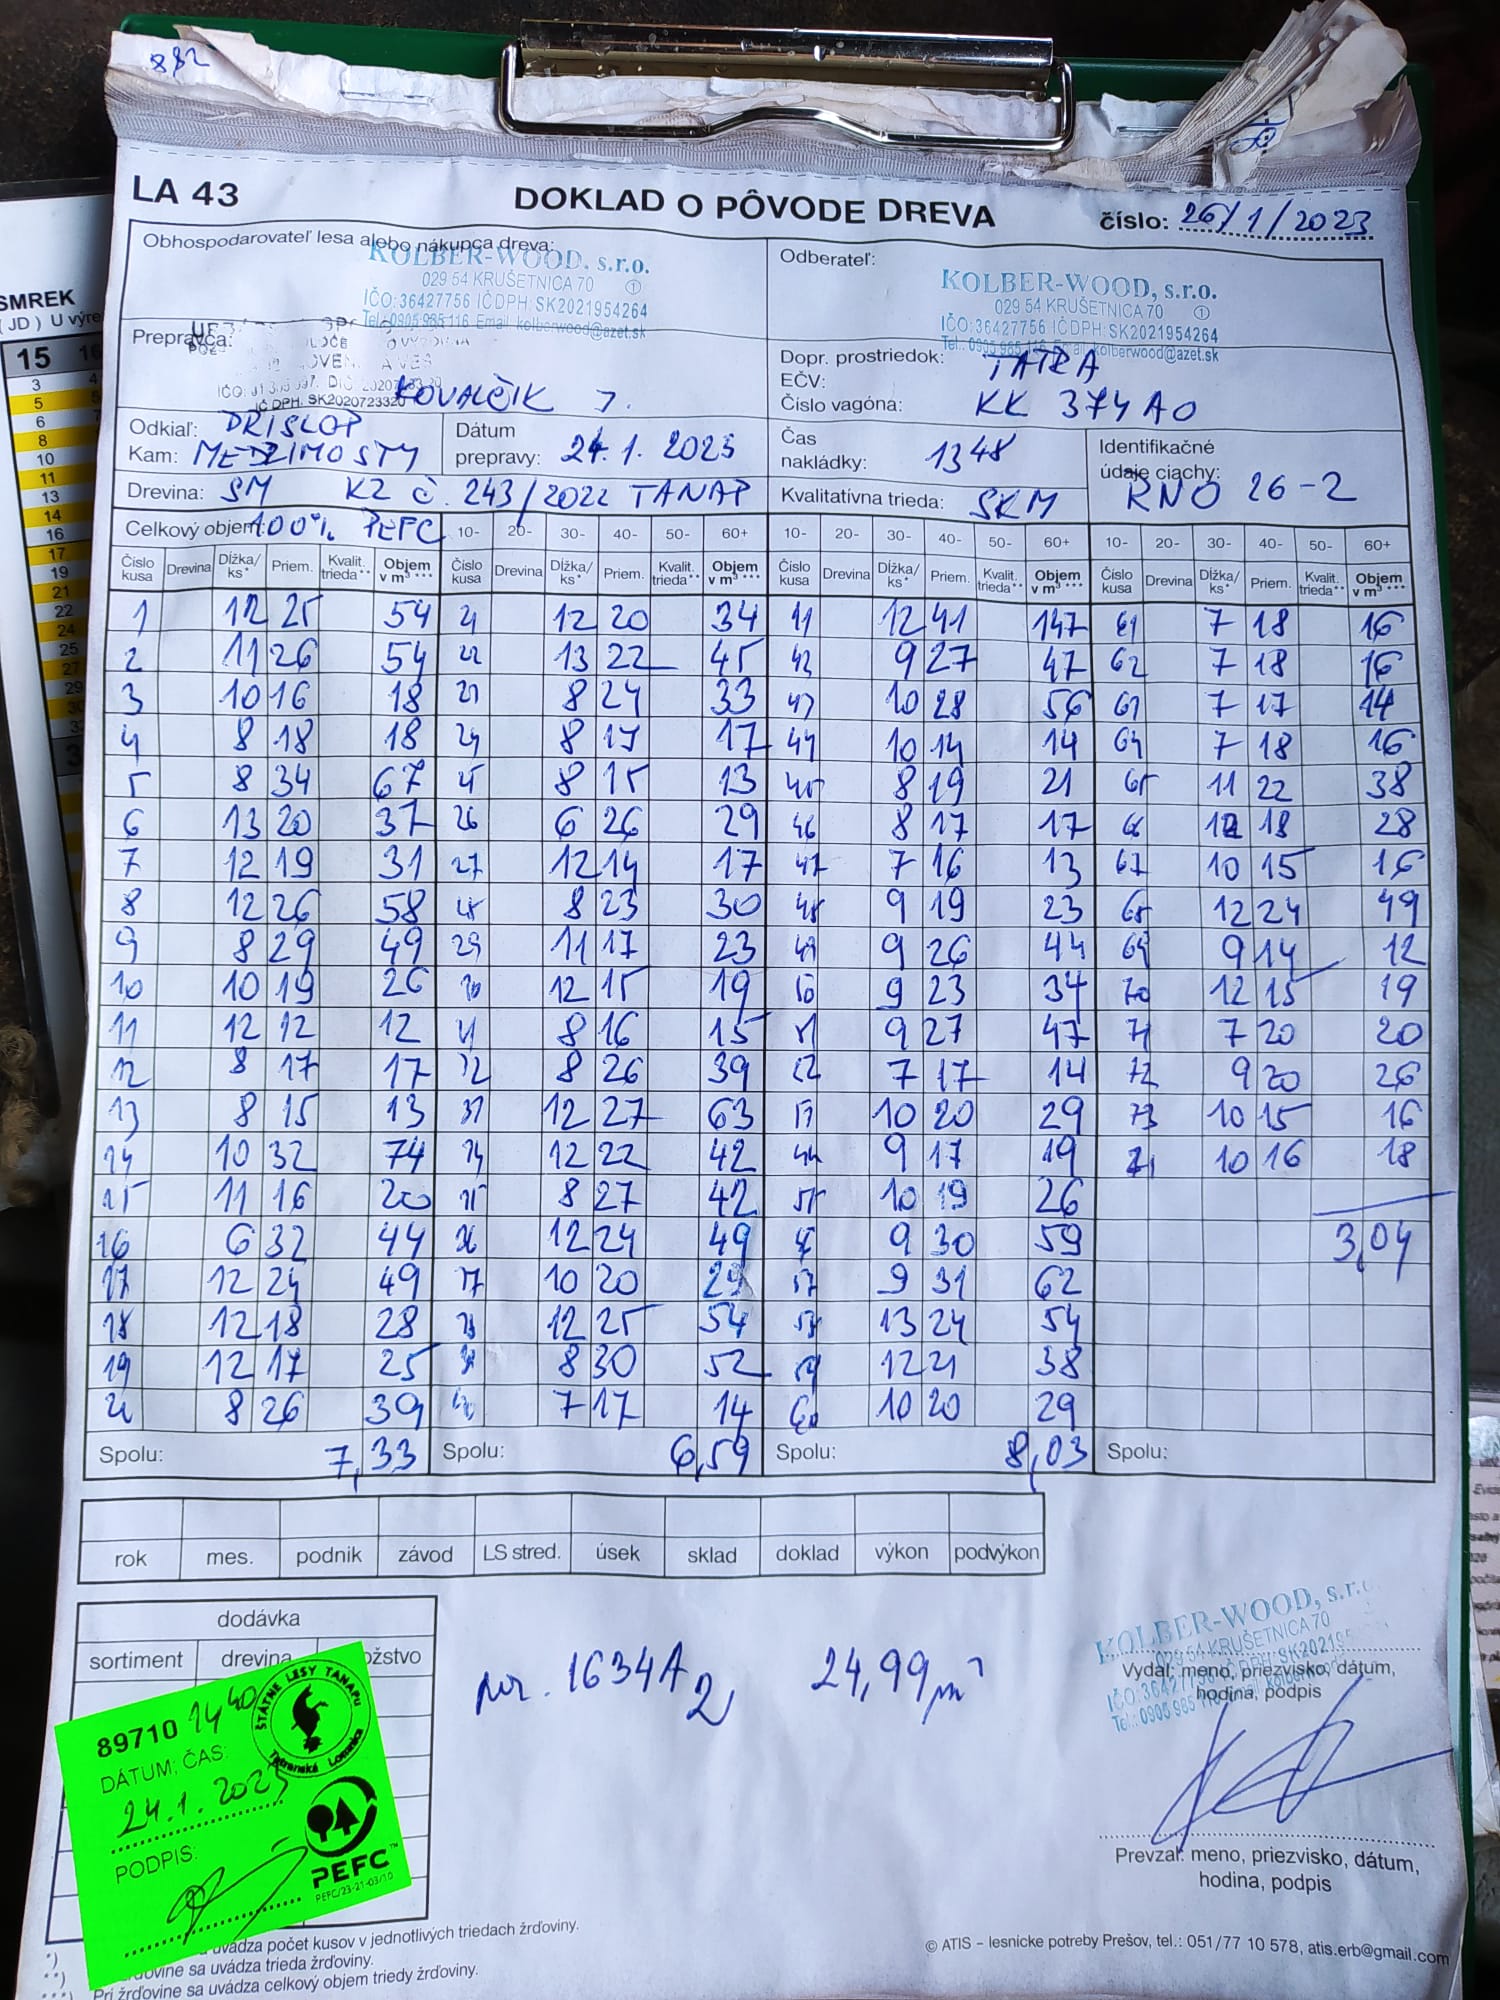 882
LA 43 DOKLAD O PÔVODE DREVA číslo: 26/1/2023
Obhospodarovateľ lesa alebo nákupca dreva:
KOLBER-WOOD, s.r.o.
029 54 KRUŠETNICA 70 1
IČO: 36427756 IČDPH: SK2021954264
Tel.: 0905 985 116 Email: kolberwood@azet.sk
Odberateľ:
KOLBER-WOOD, s.r.o.
029 54 KRUŠETNICA 70 1
IČO: 36427756 IČDPH: SK2021954264
Tel.: 0905 985 116 Email: kolberwood@azet.sk
Prepravca:
IČ DPH: SK2020723320
KOVALČIK J.
Dopr. prostriedok: TATRA
EČV:
Číslo vagóna: KK 374AO
Odkiaľ: PRISLOP
Kam: MEDZIMOSTY
Dátum
prepravy: 24. 1. 2023
Čas
nakládky: 1348
Identifikačné
údaje ciachy:
RNO 26-2
Drevina: SM KZ č. 243/2022 TANAP Kvalitatívna trieda: SKM
Celkový objem: 100% PEFC 10- 20- 30- 40- 50- 60+ 10- 20- 30- 40- 50- 60+ 10- 20- 30- 40- 50- 60+
Číslo kusa Drevina Dĺžka/ks* Priem. Kvalit. trieda** Objem v m³*** Číslo kusa Drevina Dĺžka/ks* Priem. Kvalit. trieda** Objem v m³*** Číslo kusa Drevina Dĺžka/ks* Priem. Kvalit. trieda** Objem v m³*** Číslo kusa Drevina Dĺžka/ks* Priem. Kvalit. trieda** Objem v m³***
1 12 25 54 21 12 20 34 41 12 41 147 61 7 18 16
2 11 26 54 22 13 22 45 42 9 27 47 62 7 18 16
3 10 16 18 23 8 24 33 43 10 28 56 63 7 17 14
4 8 18 18 24 8 17 17 44 10 14 14 64 7 18 16
5 8 34 67 25 8 15 13 45 8 19 21 65 11 22 38
6 13 20 37 26 6 26 29 46 8 17 17 66 12 18 28
7 12 19 31 27 12 14 17 47 7 16 13 67 10 15 16
8 12 26 58 28 8 23 30 48 9 19 23 68 12 24 49
9 8 29 49 29 11 17 23 49 9 26 44 69 9 14 12
10 10 19 26 30 12 15 19 50 9 23 34 70 12 15 19
11 12 12 12 31 8 16 15 51 9 27 47 71 7 20 20
12 8 17 17 32 8 26 39 52 7 17 14 72 9 20 26
13 8 15 13 33 12 27 63 53 10 20 29 73 10 15 16
14 10 32 74 34 12 22 42 54 9 17 19 74 10 16 18
15 11 16 20 35 8 27 42 55 10 19 26
16 6 32 44 36 12 24 49 56 9 30 59 3,04
17 12 24 49 37 10 20 29 57 9 31 62
18 12 18 28 38 12 25 54 58 13 24 54
19 12 17 25 39 8 30 52 59 12 21 38
20 8 26 39 40 7 17 14 60 10 20 29
Spolu: 7,33 Spolu: 6,59 Spolu: 8,03 Spolu:
rok mes. podnik závod LS stred. úsek sklad doklad výkon podvýkon
dodávka
sortiment drevina
por. 1634A2, 24,99 m³
KOLBER-WOOD, s.r.o.
029 54 KRUŠETNICA 70
Vydal: meno, priezvisko, dátum,
hodina, podpis
89710 14 40
DÁTUM; ČAS:
24.1.2023
PODPIS:
ŠTÁTNE LESY TANAPU
Tatranská Lomnica
PEFC™
PEFC/23-21-03/10
Prevzal: meno, priezvisko, dátum,
hodina, podpis
uvádza počet kusov v jednotlivých triedach žrďoviny.
žrďovine sa uvádza trieda žrďoviny.
Pri žrďovine sa uvádza celkový objem triedy žrďoviny.
© ATIS – lesnicke potreby Prešov, tel.: 051/77 10 578, atis.erb@gmail.com
SMREK
( JD )
15